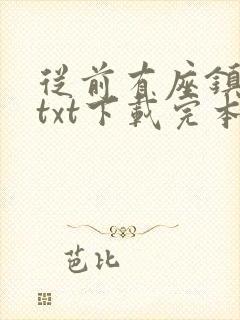 從前有座鎮
txt下載完本
芭比